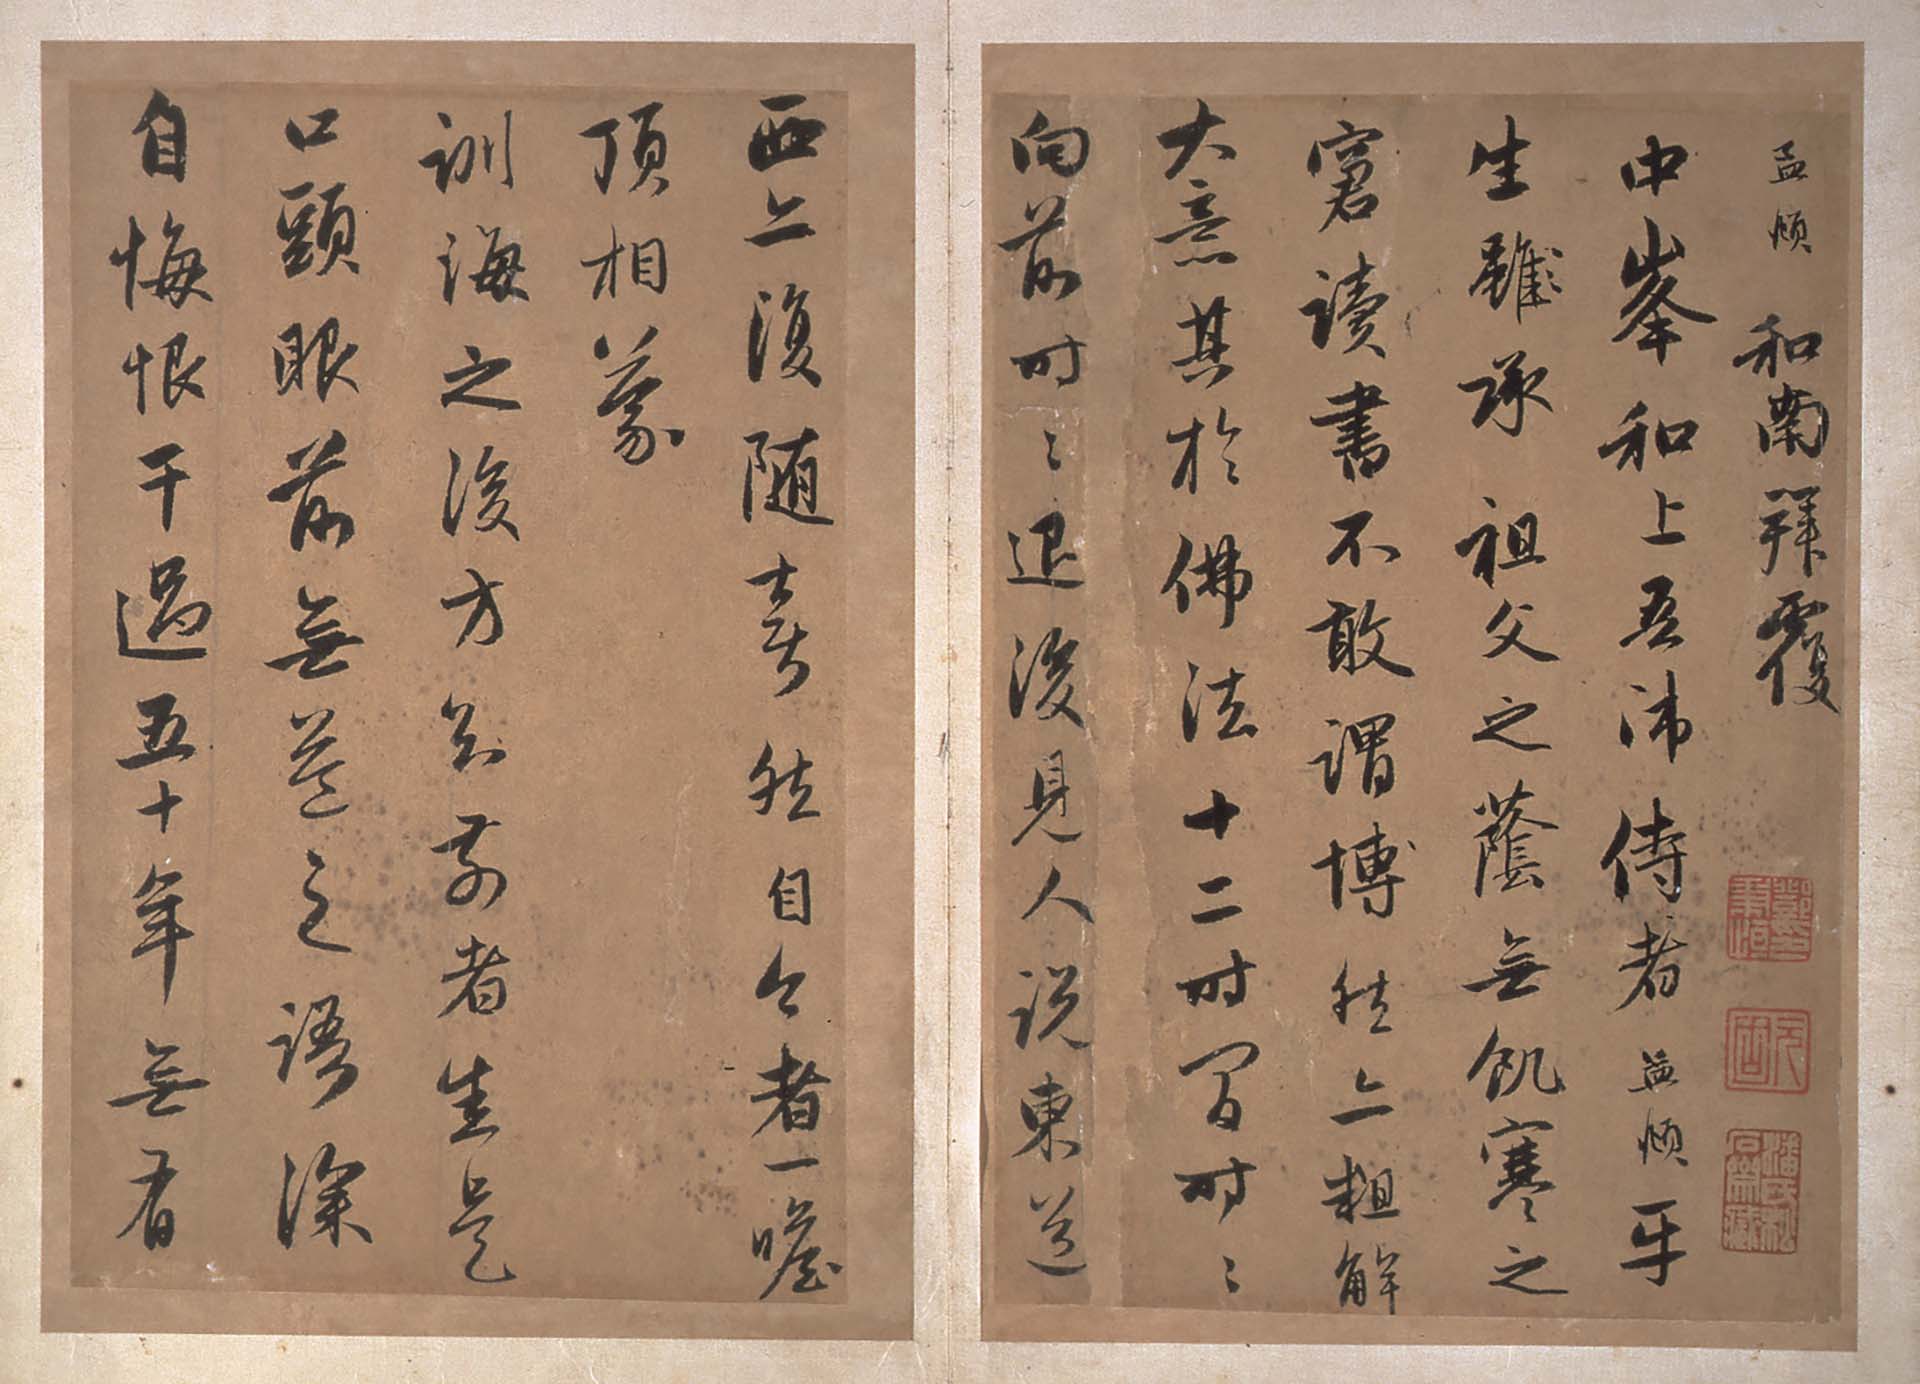 孟頫 和南拜覆
中峯和上吾師侍者孟頫平
生雖承祖父之蔭無飢寒之
窘讀書不敢謂博然亦粗解
大意其於佛法十二時間時〻
向前時〻退後見人說東道
西亦復隨喜然自今者一瞻
頂相蒙
訓誨之後方知前者生是
口頭眼前無益之語深
自悔恨干過五十年無有